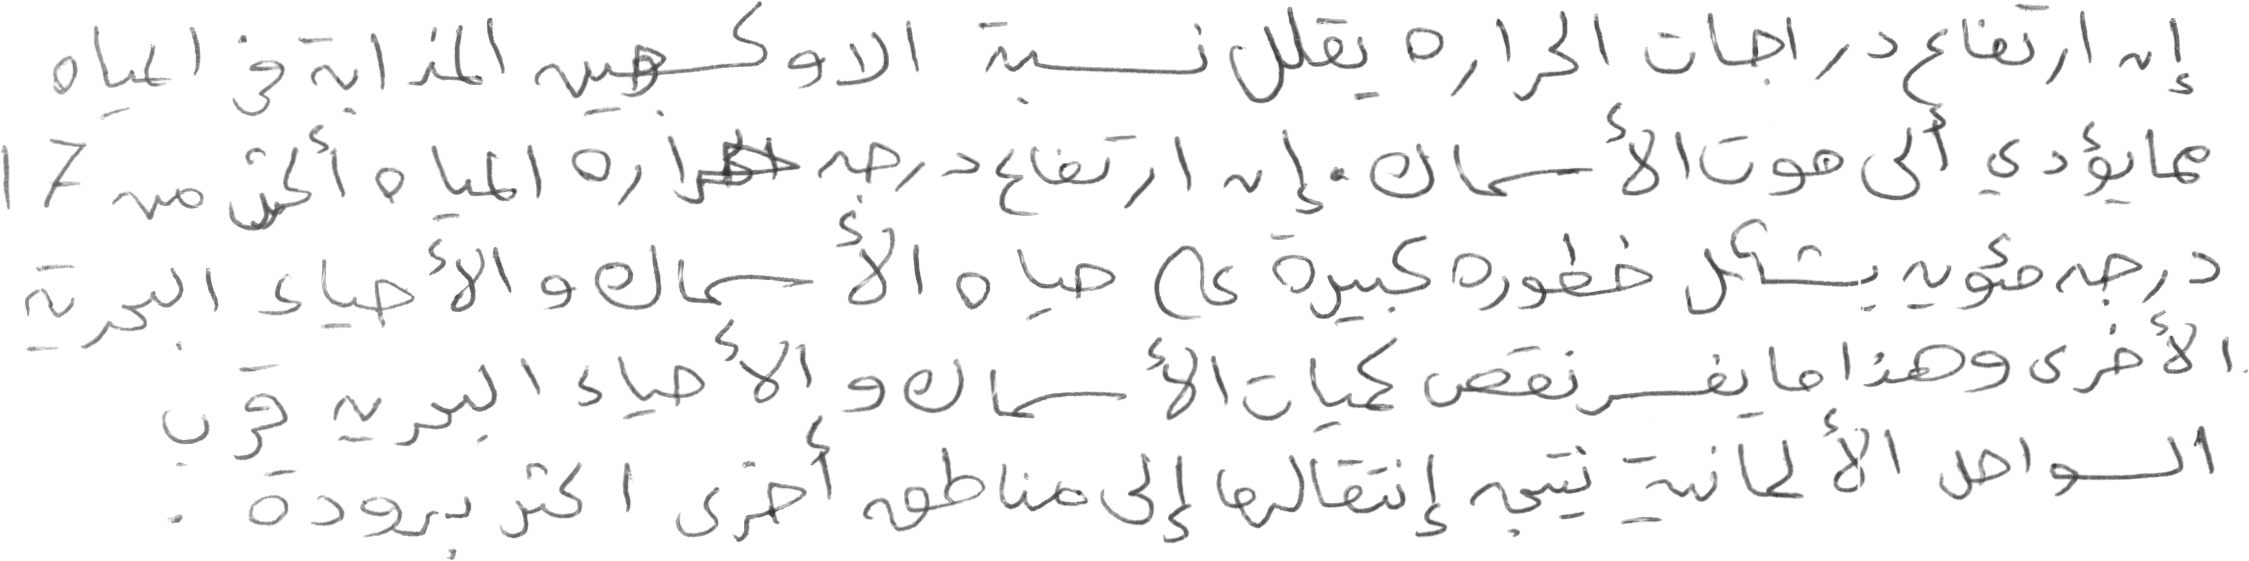 إن ارتفاع دراجات الحراره يقلل نسبة الاوكسجين المذابة في المياه
مما يؤدي ألى موت الأسماك. إن ارتفاع درجه حراره المياه أكثر من 17
درجه مئويه يشكل خطوره كبيرة على حياه الأسماك والأحياء البحرية
الأخرى وهذا ما يفسر نقص كميات الأسماك والأحياء البحريه قرب
السواحل الألمانية نتيجه إنتقالها إلى مناطق أخرى اكثر برودة.